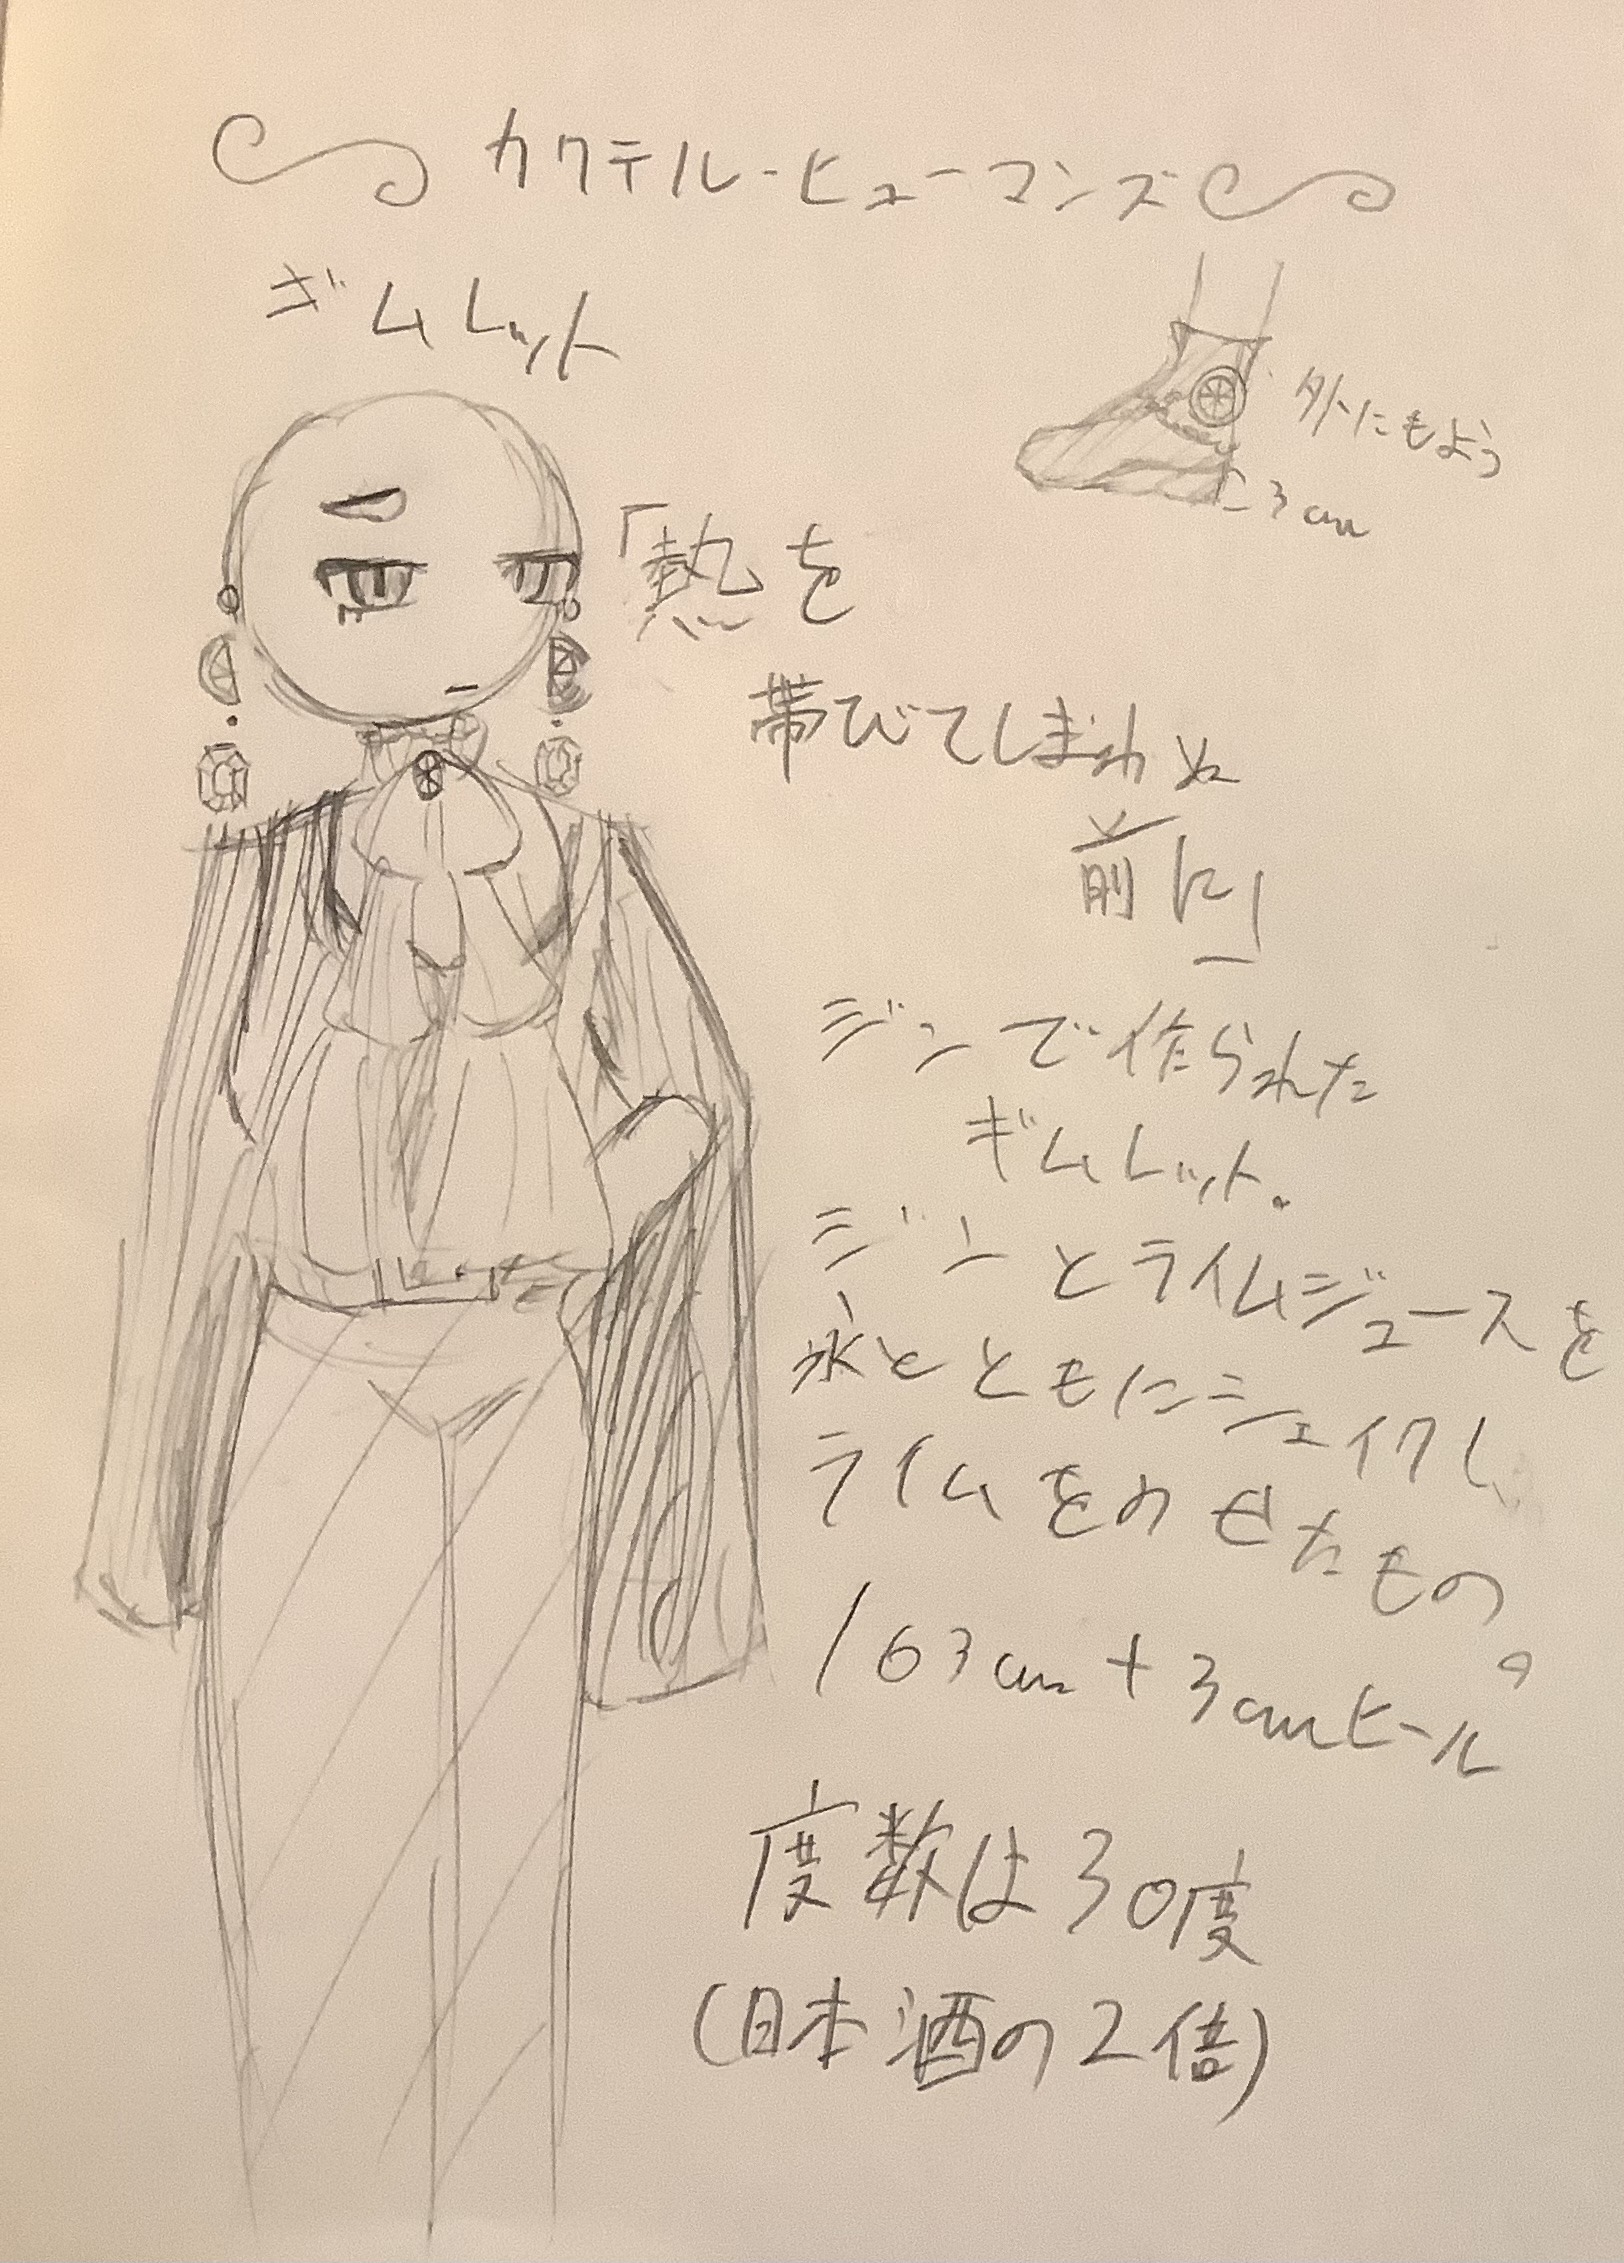 カクテル・ヒューマンズ
ギムレット
外にもよう
3cm
「熱を
帯びてしまわぬ
前に」
ジンで作られた
ギムレット。
ジンとライムジュースを
氷とともにシェイクし
ライムをのせたもの。
163cm+3cmヒール
度数は30度
(日本酒の2倍)